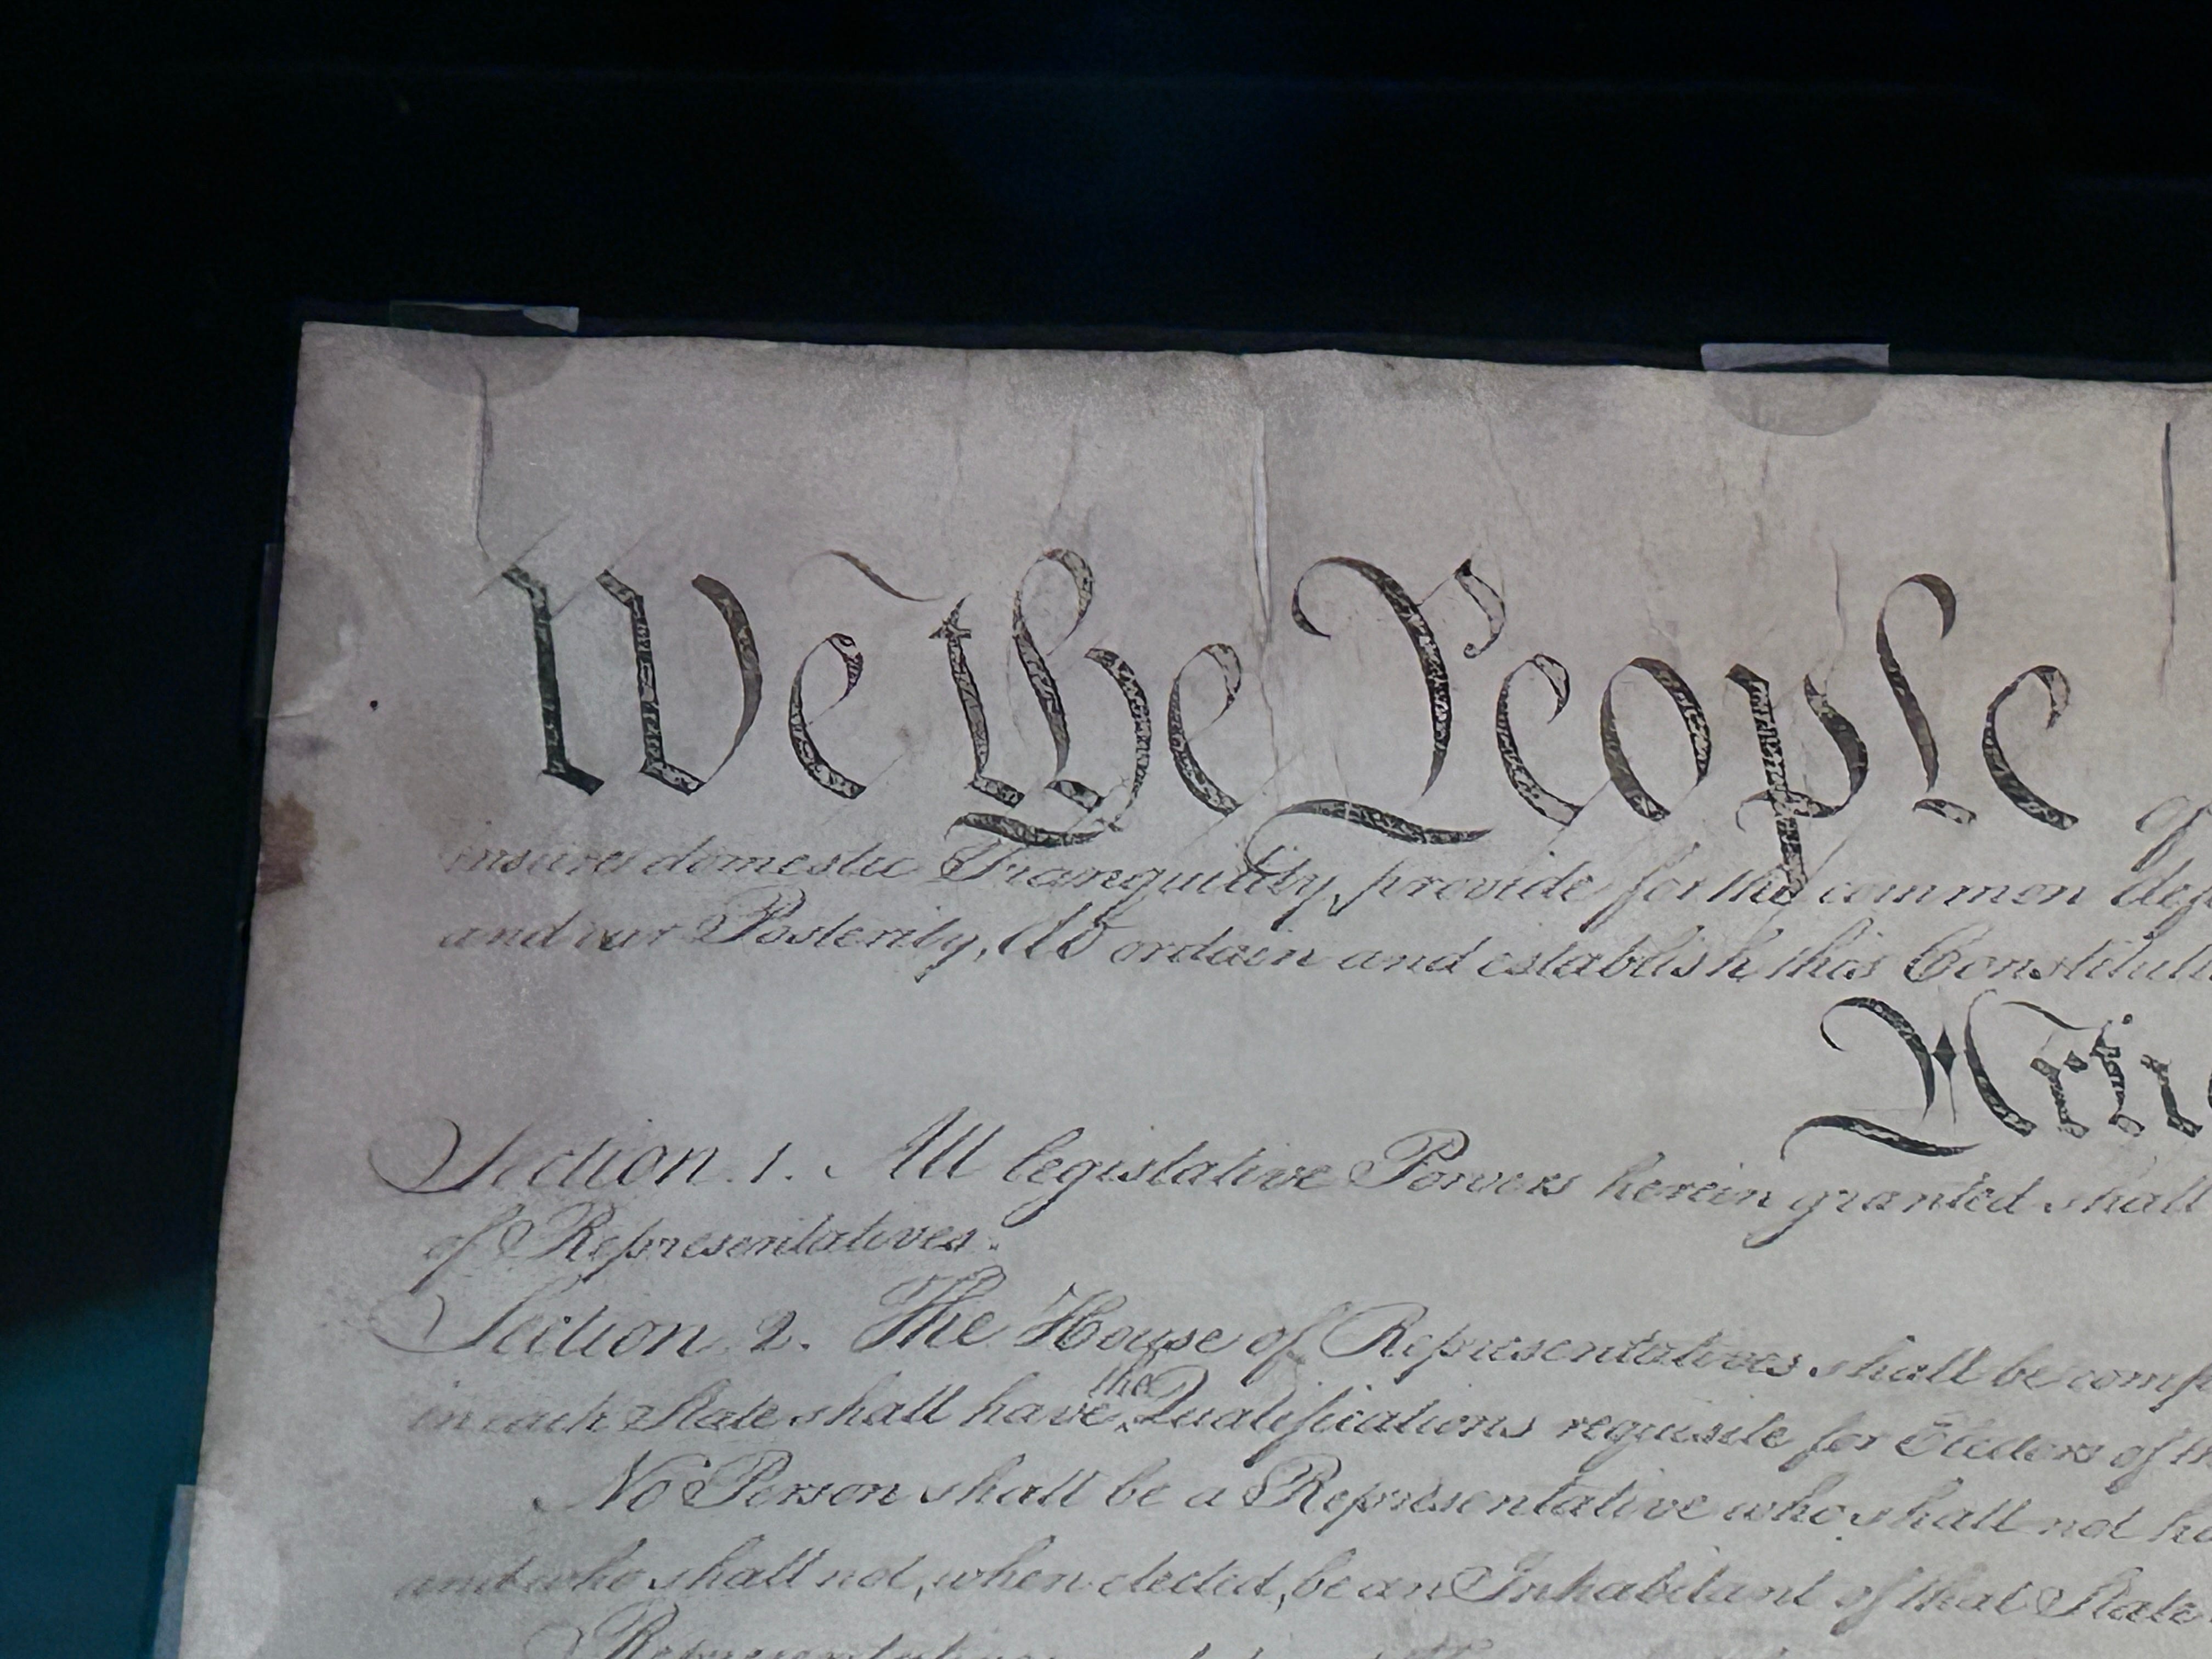 We the People of
insure domestic Tranquility, provide for the common def
and our Posterity, do ordain and establish this Constituti
Artic
Section. 1. All legislative Powers herein granted shall
of Representatives.
Section. 2. The House of Representatives shall be comp
the
in each State shall have Qualifications requisite for Electors of th
No Person shall be a Representative who shall not ha
and who shall not, when elected, be an Inhabitant of that State
Representatives